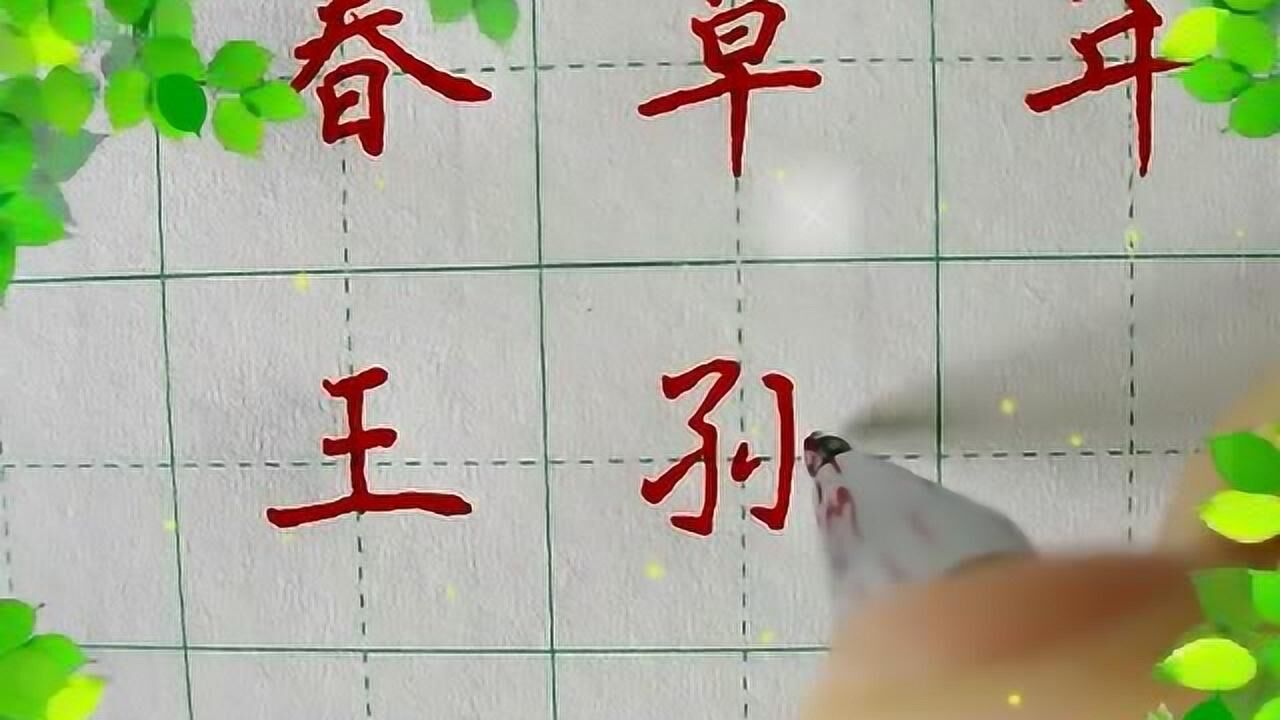 春草年
王孙